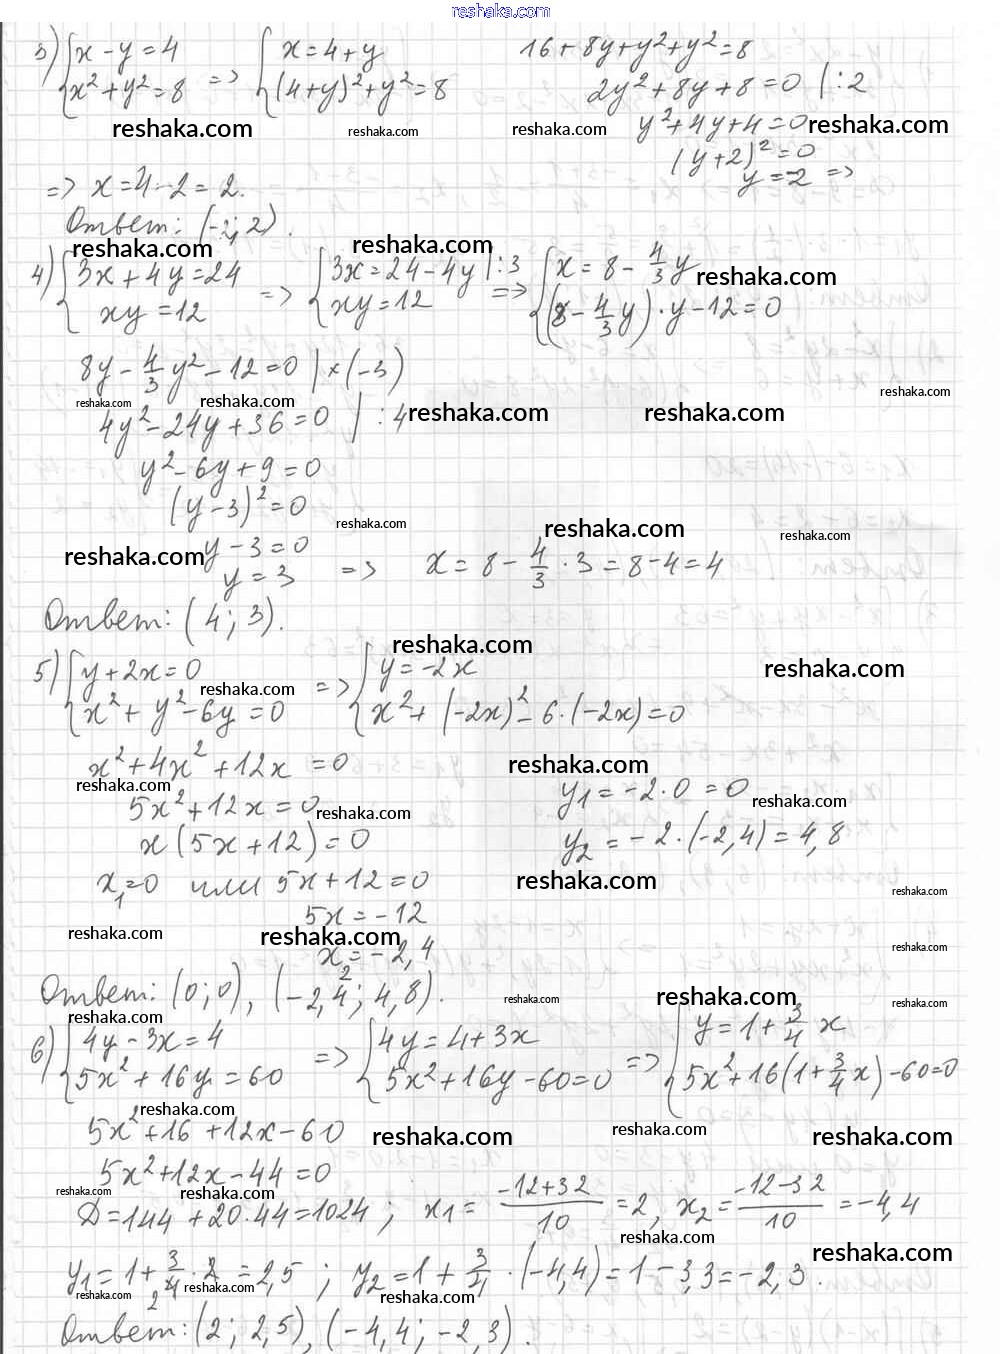 reshaka.com
3) { x - y = 4 => { x = 4 + y 16 + 8y + y² + y² = 8
x² + y² = 8 (4+y)² + y² = 8 2y² + 8y + 8 = 0 | :2
reshaka.com reshaka.com reshaka.com y² + 4y + 4 = 0 reshaka.com
(y+2)² = 0
=> x = 4 - 2 = 2. y = -2 =>
Ответ: (-2; 2).
reshaka.com reshaka.com
4) { 3x + 4y = 24 => { 3x = 24 - 4y | :3 => { x = 8 - 4/3 y reshaka.com
xy = 12 xy = 12 (8 - 4/3 y) · y - 12 = 0
8y - 4/3 y² - 12 = 0 | × (-3)
reshaka.com reshaka.com reshaka.com
4y² - 24y + 36 = 0 | :4 reshaka.com reshaka.com
y² - 6y + 9 = 0
(y - 3)² = 0
reshaka.com reshaka.com reshaka.com
reshaka.com y - 3 = 0
y = 3 => x = 8 - 4/3 · 3 = 8 - 4 = 4
Ответ: (4; 3).
reshaka.com
5) { y + 2x = 0 => { y = -2x reshaka.com
reshaka.com
x² + y² - 6y = 0 x² + (-2x)² - 6 · (-2x) = 0
x² + 4x² + 12x = 0 reshaka.com
reshaka.com y₁ = -2 · 0 = 0 reshaka.com
5x² + 12x = 0 reshaka.com
x (5x + 12) = 0 y₂ = -2 · (-2,4) = 4,8
x₁ = 0 или 5x + 12 = 0 reshaka.com reshaka.com
5x = -12
reshaka.com reshaka.com reshaka.com
x₂ = -2,4
Ответ: (0; 0), (-2,4; 4,8). reshaka.com reshaka.com reshaka.com
reshaka.com
6) { 4y - 3x = 4 => { 4y = 4 + 3x => { y = 1 + 3/4 x
5x² + 16y = 60 5x² + 16y - 60 = 0 5x² + 16(1 + 3/4 x) - 60 = 0
reshaka.com
5x² + 16 + 12x - 60 reshaka.com reshaka.com reshaka.com
5x² + 12x - 44 = 0
reshaka.com reshaka.com
D = 144 + 20·44 = 1024 ; x₁ = -12+32/10 = 2, x₂ = -12-32/10 = -4,4
reshaka.com reshaka.com
y₁ = 1 + 3/4 · 2 = 2,5 ; y₂ = 1 + 3/4 · (-4,4) = 1 - 3,3 = -2,3.
reshaka.com reshaka.com reshaka.com
2
Ответ: (2; 2,5), (-4,4; -2,3).